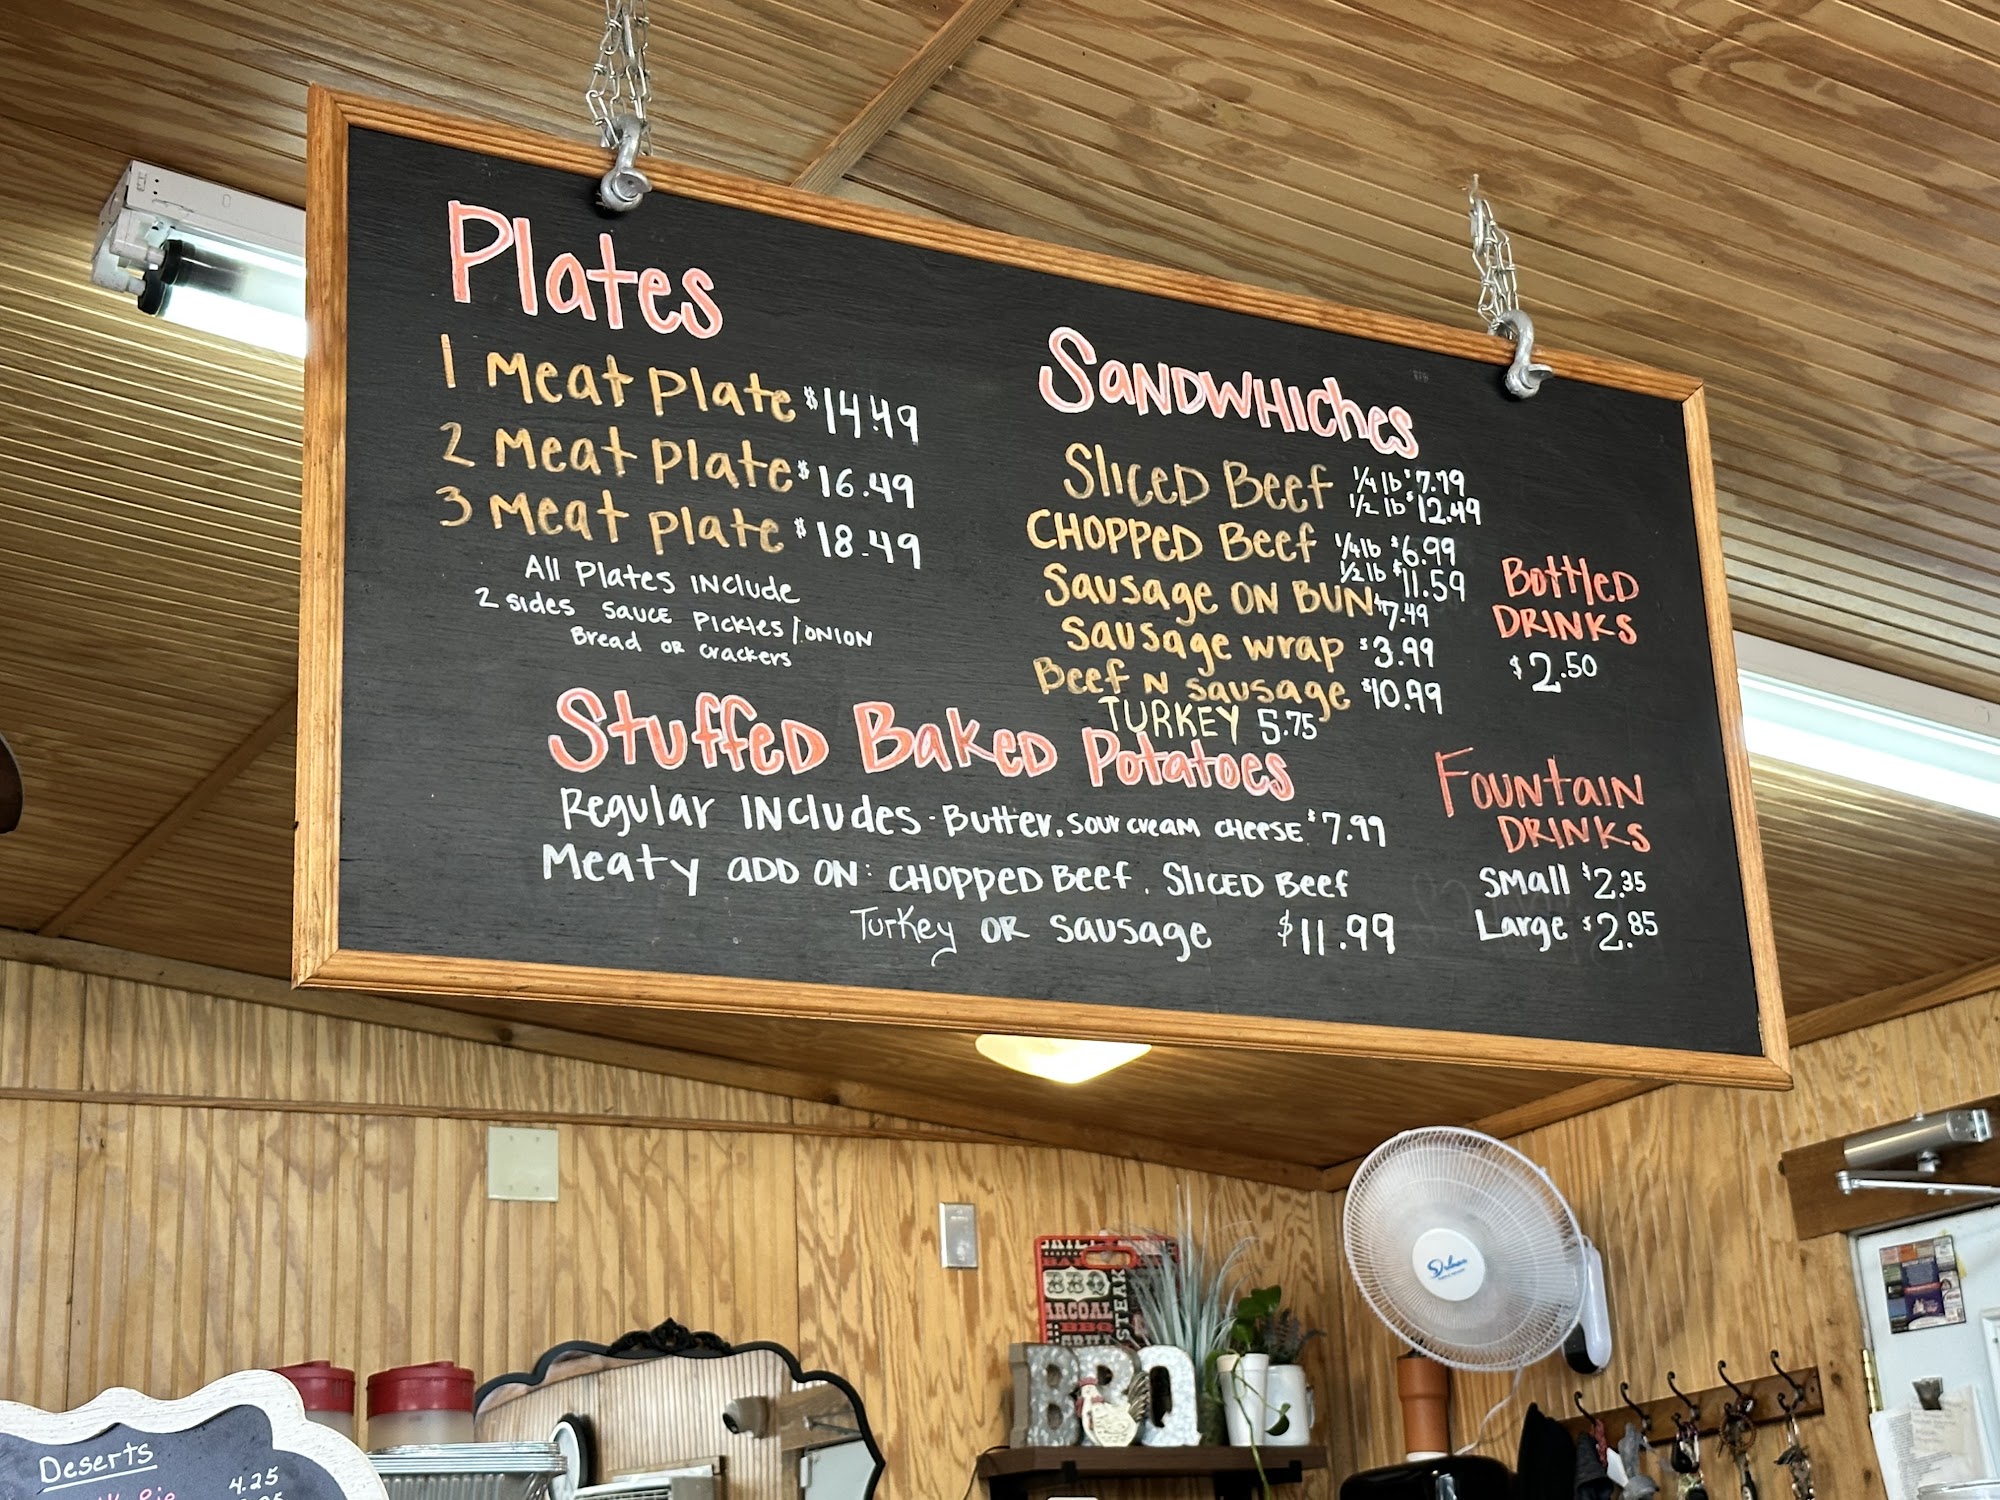 Plates
1 Meat Plate $14.49
2 Meat Plate $16.49
3 Meat Plate $18.49
All Plates INclude
2 sides sauce Pickles / ONION
Bread or crackers
SANDWHICHES
Sliced Beef 1/4 lb $7.79
1/2 lb $12.49
CHOPPED Beef 1/4 lb $6.99
1/2 lb $11.59
Sausage ON BUN $7.49
Sausage wrap $3.99
Beef N sausage $10.99
TURKEY 5.75
Bottled
DRINKS
$2.50
Stuffed Baked Potatoes
Regular INCludes - Butter, sour cream cheese $7.99
Meaty ADD ON: CHOPPED Beef, Sliced Beef
Turkey or sausage $11.99
Fountain
DRINKS
Small $2.35
Large $2.85
BBQ
ARCOAL
BBQ
STEAK
BBQ
Deserts
4.25